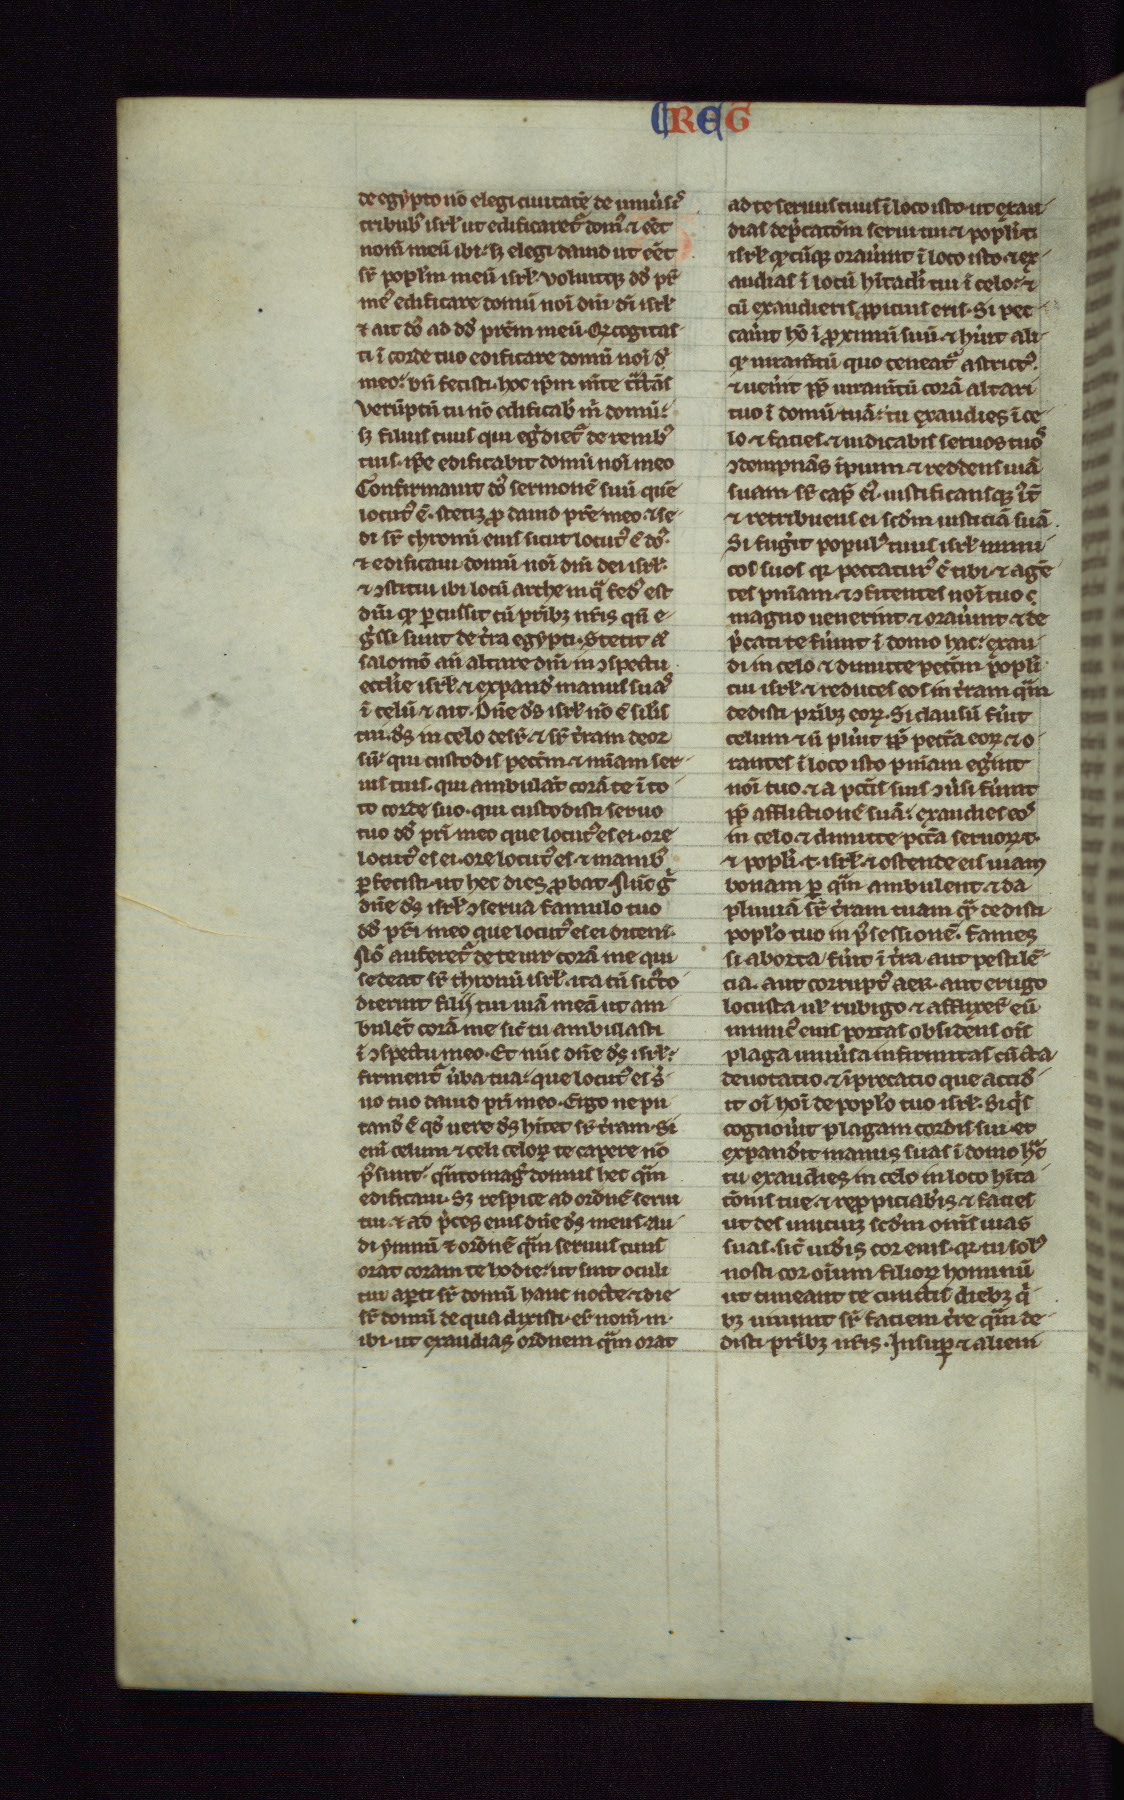 REG
de egypto nō elegi ciuitatē de uniu̾sis
tribub' isrł ut edificaret᷑ dom' ⁊ eēt
nom̄ meū ibi· sꝫ elegi dauid ut eēt
sr̄ popl̄m meū isrł· voluitqꝫ dd̄ pr̄
me' edificare domū noī dn̄i dī isrł
⁊ ait dn̄s ad dd̄ prēm meū· Qꝛ cogitas
ti ī corde tuo edificare domū noī
meo· bn̄ fecisti· hoc ip̄m mēte
Verūptn̄ tu nō edificab' m̄ domū·
sꝫ filius tuus qui eg̾diet᷑ de renib'
tuis· ip̄e edificabit domū noī meo
Confirmauit dn̄s sermonē suū quē
locut' ē· stetiqꝫ ꝓ dauid prē meo· ⁊ se
di sr̄ thronū eius sicut locut' ē dn̄s·
⁊ edificaui domū noī dn̄i dei isrł·
⁊ ꝯstitui ibi locū arche in qͣ fed' est
dn̄i qd̄ ꝑcussit cū prib'ꝫ nr̄is qn̄ e
g̾ssi sunt de tr̄a egypti· Stetit at̄
salomō an̄ altare dn̄i in ꝯspectu
eccl̄ie isrł· ⁊ expand' manus suas
ī celū ⁊ ait· Dn̄e ds̄ isrł nō ē sil̄is
tui· ds̄ in celo desr̄· ⁊ sr̄ tr̄am deor
sū· qui custodis pectm̄ ⁊ mīam ser
uis tuis· qui ambulāt corā te ī to
to corde suo· qui custodisti seruo
tuo dd̄ pri meo que locut' es ei· ore
locut' es ei· ore locut' es ⁊ manib'
ꝑfecisti· ut hec dies ꝓbat· Nūc g̾
dn̄e ds̄ isrł ꝯserua famulo tuo
dd̄ pr̄i meo que locut' es ei dicens·
Nō auferet᷑ de te uir corā me qui
sedeat sr̄ thronū isrł· ita tn̄ si c̾to
dierint filij tui uiā meā ut am
bulet corā me sic̄ tu ambulasti
ī ꝯspectu meo· Et nūc dn̄e ds̄ isrł·
firment᷑ u̾ba tua· que locut' es s̾
uo tuo dauid pri meo· Ergo ne pu
tand' ē qd̄ uere ds̄ hītet sr̄ tr̄am· Si
enī celum ⁊ celi celoꝝ te capere nō
p̾sunt· qn̄tomag̾ domus hec qm̄
edificaui· Sꝫ respice ad ordn̄ē serui
tui ⁊ ad p̾ces eius dn̄e ds̄ meus· Au
di ymnū ⁊ ordn̄ē qm̄ seruus tuus
orat coram te hodie· ut sint oculi
tui aꝑti sr̄ domū hanc nocte ⁊ die
sr̄ domū de qua dixisti· er̄ nom̄ m̄
ibi· ut exaudias ordn̄em qm̄ orat
ad te seruus tuus ī loco isto· ut exau
dias dep̾catōm serui tui ⁊ popl̄i t̄i
isrł qd̄cūqꝫ orau̾int ī loco isto ⁊ ex
audias ī locū hītacl̄i tui ī celo· ⁊
cū exaudieris ꝓpicius eris· Si pec
cau̾it hō ī ꝓximū suū· ⁊ hūit ali
qd̄ iuram̄tū quo teneat᷑ astrict'·
⁊ uen̾it ꝓp̄ iuram̄tū corā altari
tuo ī domū tuā· tu exaudies ī ce
lo ⁊ facies· ⁊ iudicabis seruos tuos
ꝯdempnās īpium ⁊ reddens uiā
suam sr̄ cap̄ ei'· iustificansqꝫ
⁊ retribuens ei scdm̄ iusticiā suā·
Si fug̾it popul' tuus isrł inimi
cos suos qꝛ peccatur' ē tibi· ⁊ agē
tes pn̄iam· ⁊ ꝯfitentes noī tuo
magno uenerint ⁊ orau̾int ⁊ de
p̾cati te fu̾int ī domo hac· exau
di in celo ⁊ dimitte pectm̄ popl̄i
tui isrł· ⁊ reduces eos in tr̄am qm̄
dedisti prib'ꝫ eoꝝ· Si clausū fu̾it
celum ⁊ n̄ plu̾it ꝓp̄ pectā eoꝝ ⁊ o
rantes ī loco isto pn̄iam eg̾int
noī tuo ⁊ a pectīs suis ꝯu̾si fu̾int
ꝓp̄ afflictionē suā· exaudies eos
in celo ⁊ dimitte pectā seruoꝝ t·
⁊ popl̄i t· isrł· ⁊ ostende eis uiam
bonam ꝑ qm̄ ambulent ⁊ da
pluuiā sr̄ tr̄am tuam qm̄ dedisti
popl̄o tuo in p̾sessionē· Fames
si aborta fu̾it ī tr̄a aut pestilē
cia· aut corrupt' aer· aut erugo
locusta ul̄ rubigo· ⁊ afflixer̄ eū
inimic' eius portas obsidens oīs
plaga uniu̾sa infirmitas cūcta
deuotatio ⁊ īprecatio que accid'
it oī hoī de popl̄o tuo isrł· Si q̾s
cognou̾it plagam cordis sui· et
expand'it manus suas ī domo hc̄
tu exaudies in celo in loco hīta
tōnis tue· ⁊ repꝓpiciab'is· ⁊ facies
ut des unicuiqꝫ scdm̄ om̄s uias
suas· sic̄ uid'is cor eius· qꝛ tu sol'
nosti cor oīum filioꝝ hominū
ut timeant te cunctis dieb'ꝫ q̾
bꝫ uiuunt sr̄ faciem tr̄e qm̄ de
disti prib'ꝫ nr̄is· Insuꝑ ⁊ alieni